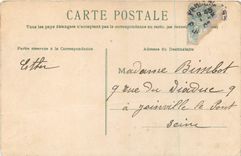 CARTE POSTALE
Tous les pays étrangers n'acceptent pas la correspondance au recto.
Partie réservée à la Correspondance
Adresse du Destinataire
Esther
Madame Bisslot
9 rue du Viaduc 9
à Joinville le Pont
Seine